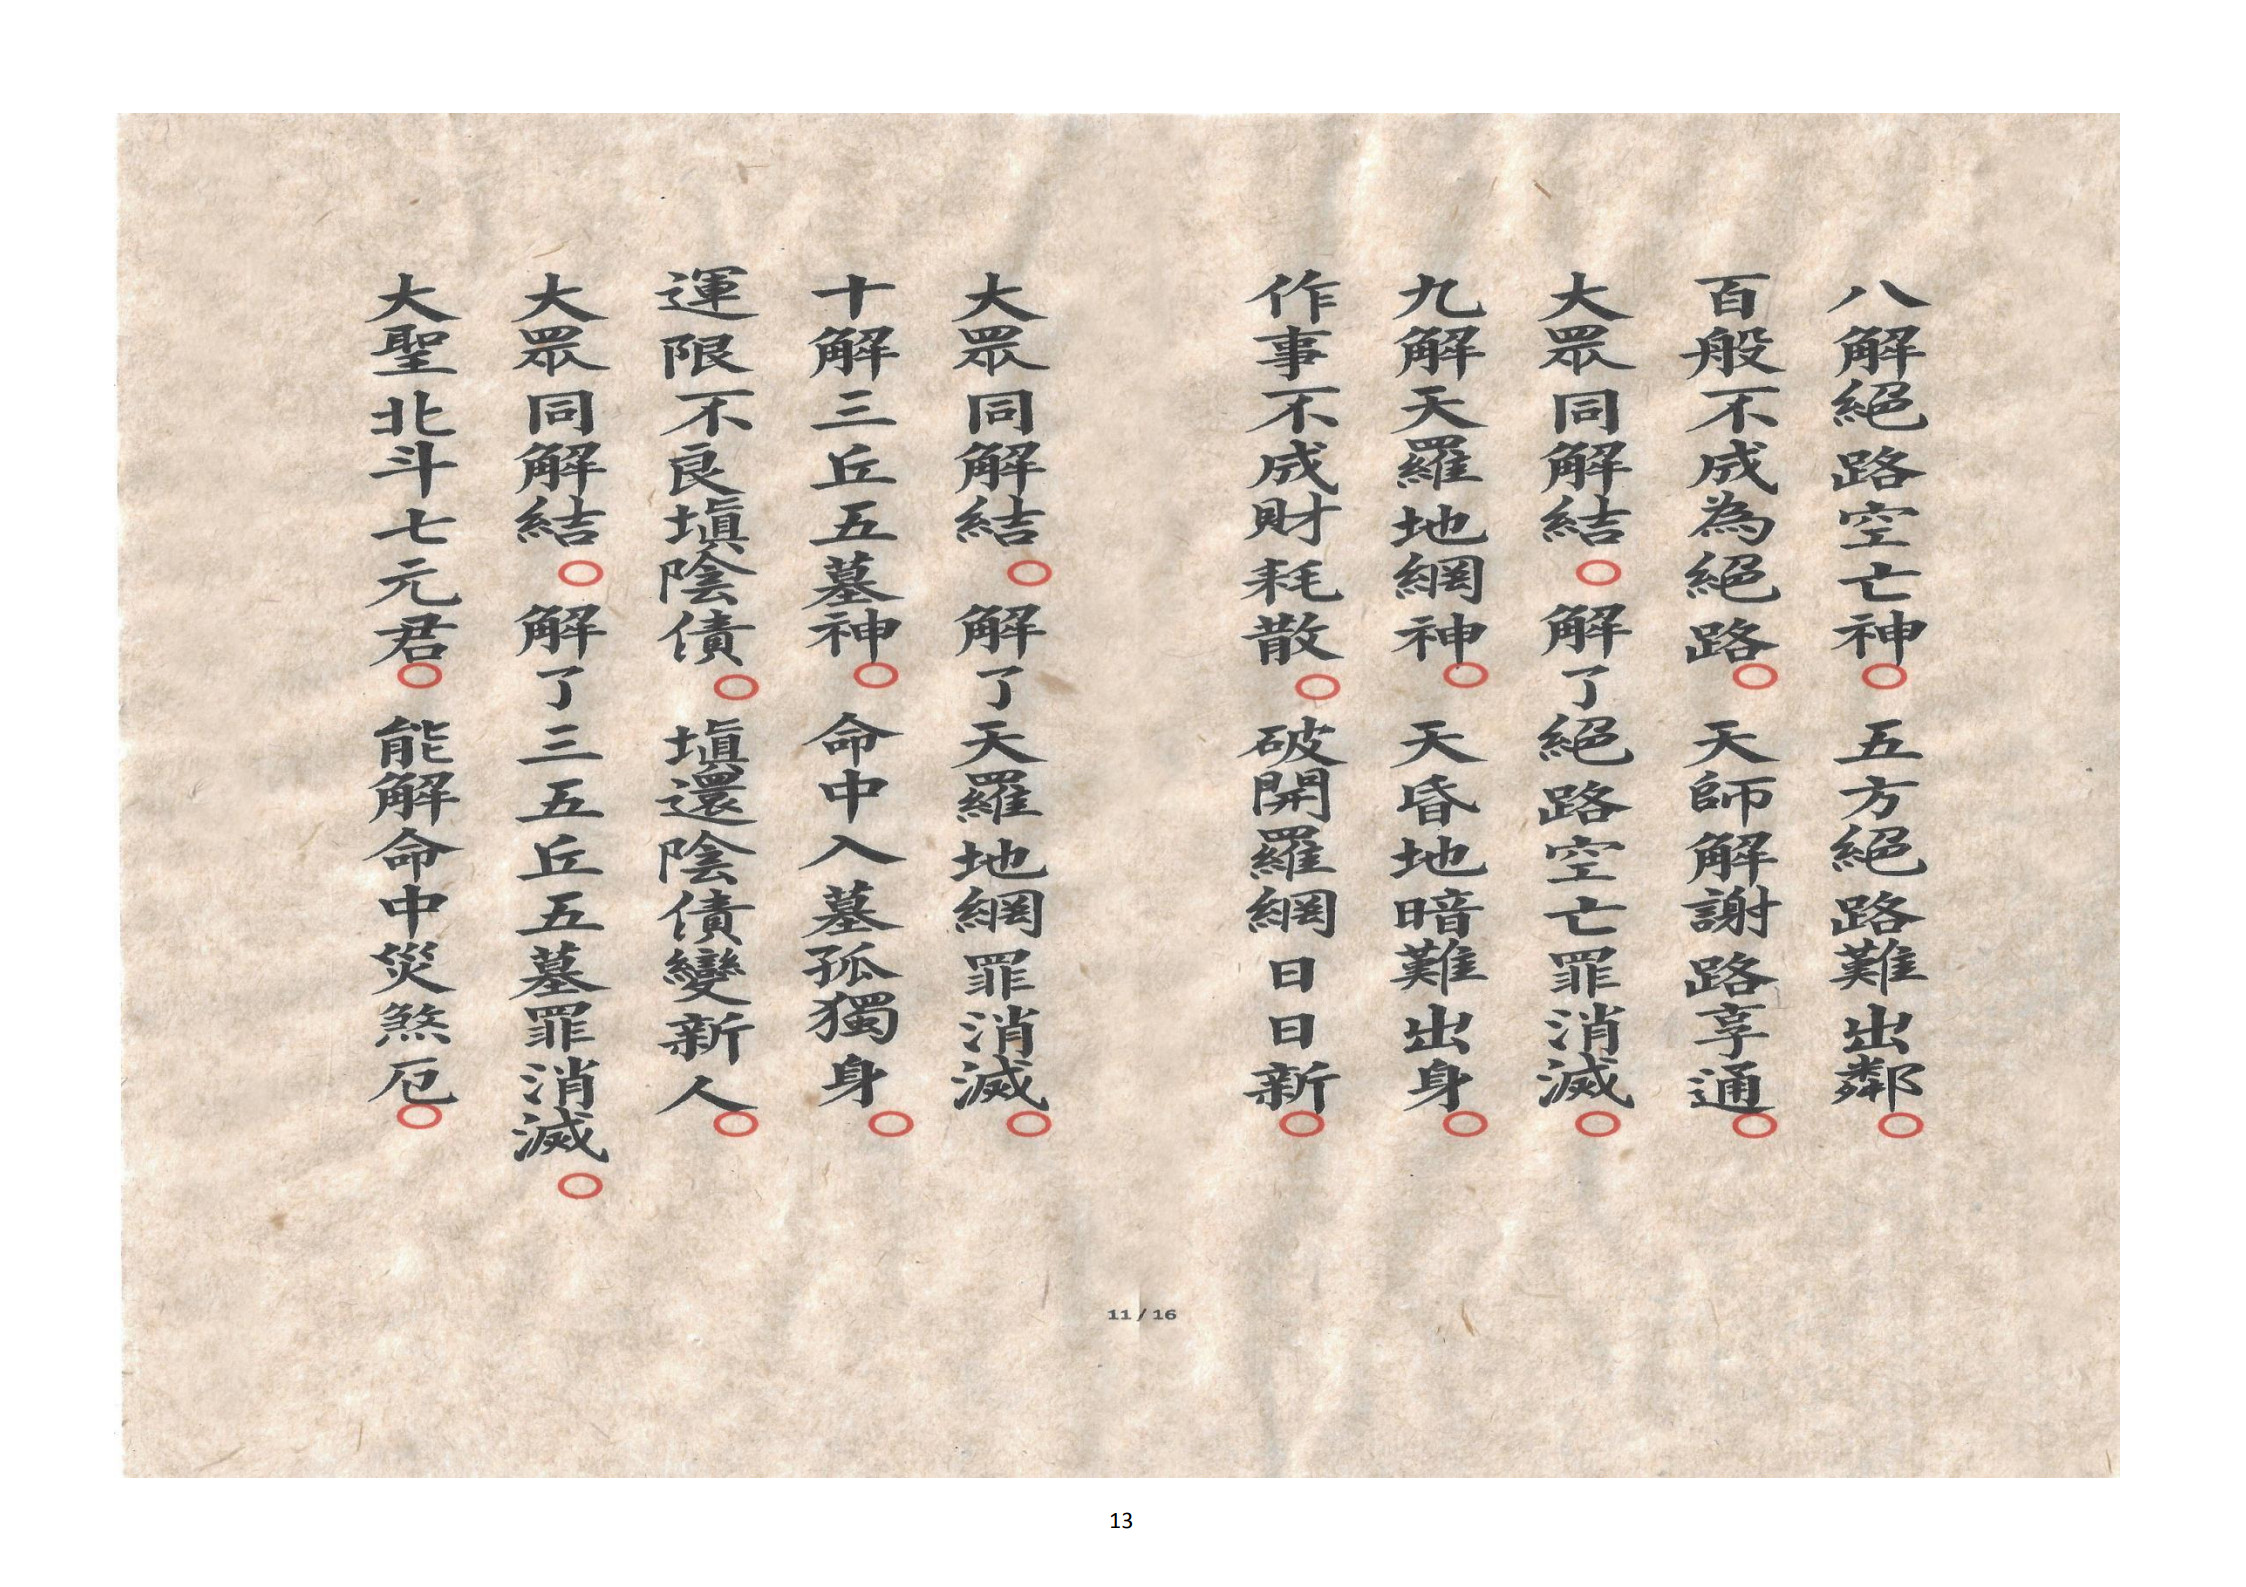 八解絕路空亡神○五方絕路難出鄰○
百般不成為絕路○天師解謝路享通○
大眾同解結○解了絕路空亡罪消滅○
九解天羅地網神○天昏地暗難出身○
作事不成財耗散○破開羅網日日新○
大眾同解結○解了天羅地網罪消滅○
十解三丘五墓神○命中入墓孤獨身○
運限不良塡陰債○塡還陰債變新人○
大眾同解結○解了三五丘五墓罪消滅○
大聖北斗七元君○能解命中災煞厄○
11 / 16
13